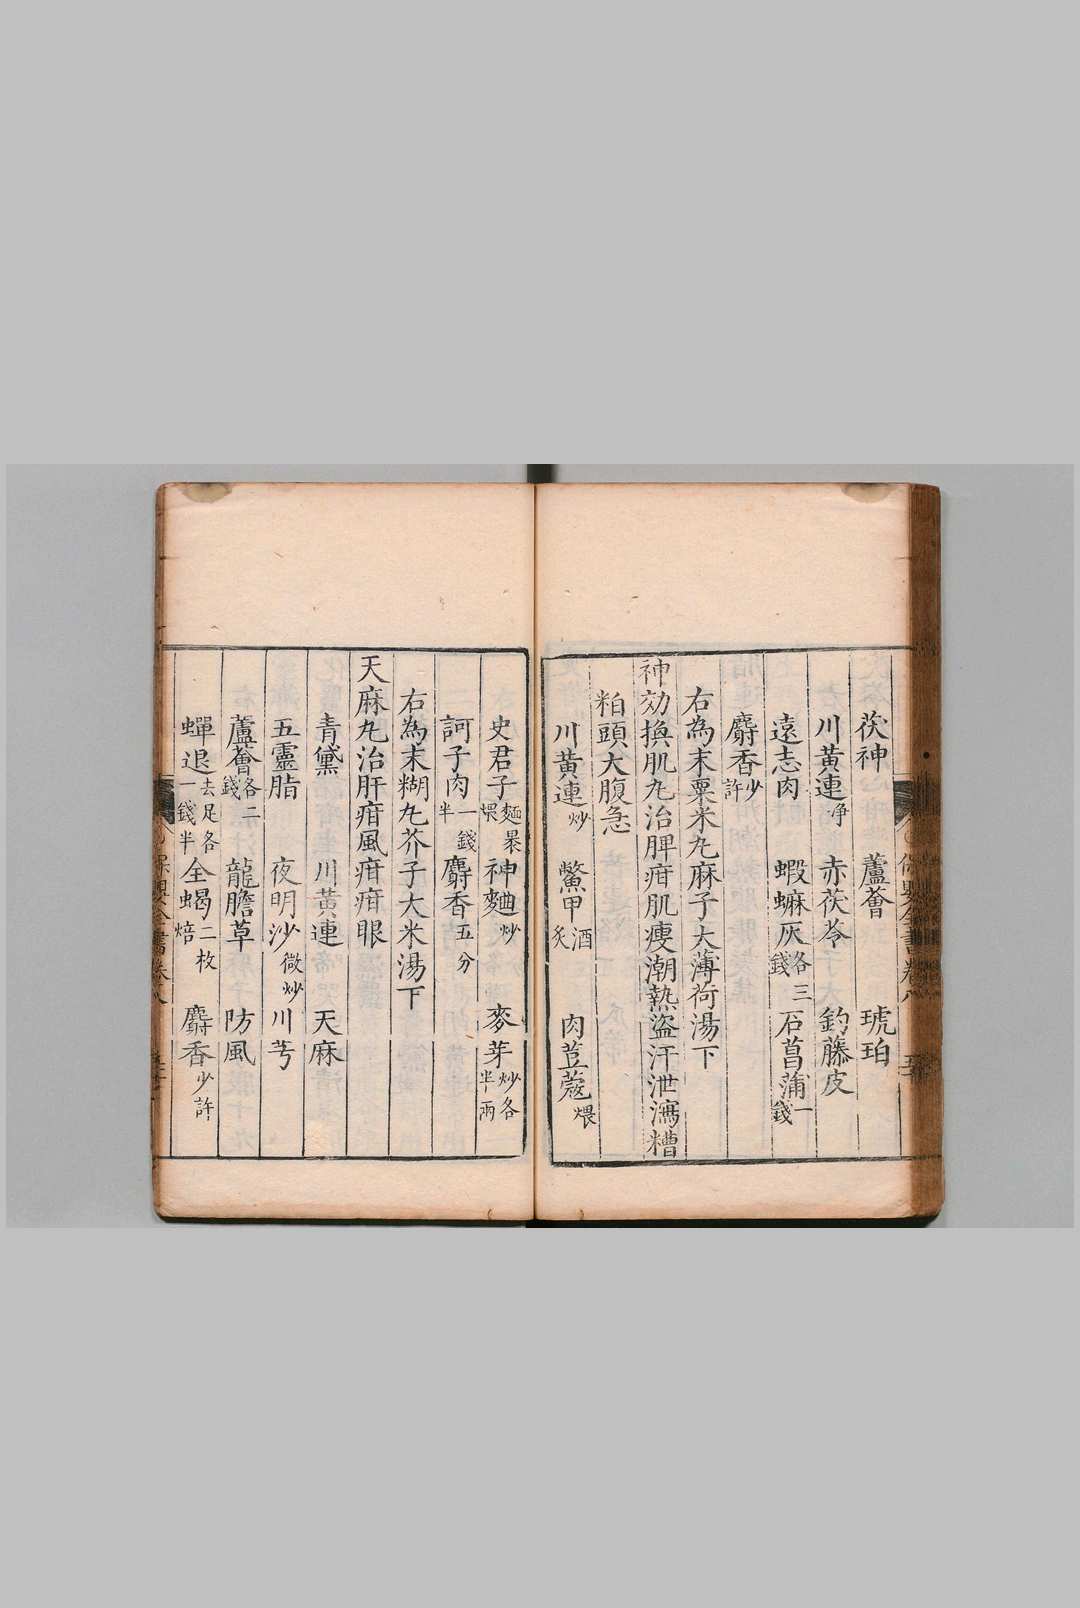 茯神 蘆薈 琥珀
川黃連淨 赤茯苓 釣藤皮
遠志肉 蝦蟆灰各三錢 石菖蒲一錢
麝香少許
右為末粟米丸麻子大薄荷湯下
神効換肌丸治脾疳肌瘦潮熱盜汗泄瀉糟
粕頭大腹急
川黃連炒 鱉甲酒炙 肉荳蔻煨
史君子麵裹煨 神麯炒 麥芽炒各半兩
訶子肉一錢半 麝香五分
右為末糊丸芥子大米湯下
天麻丸治肝疳風疳疳眼
青黛 川黃連 天麻
五靈脂 夜明沙微炒 川芎
蘆薈各二錢 龍膽草 防風
蟬退去足各一錢半 全蝎二枚焙 麝香少許
保嬰全書卷八